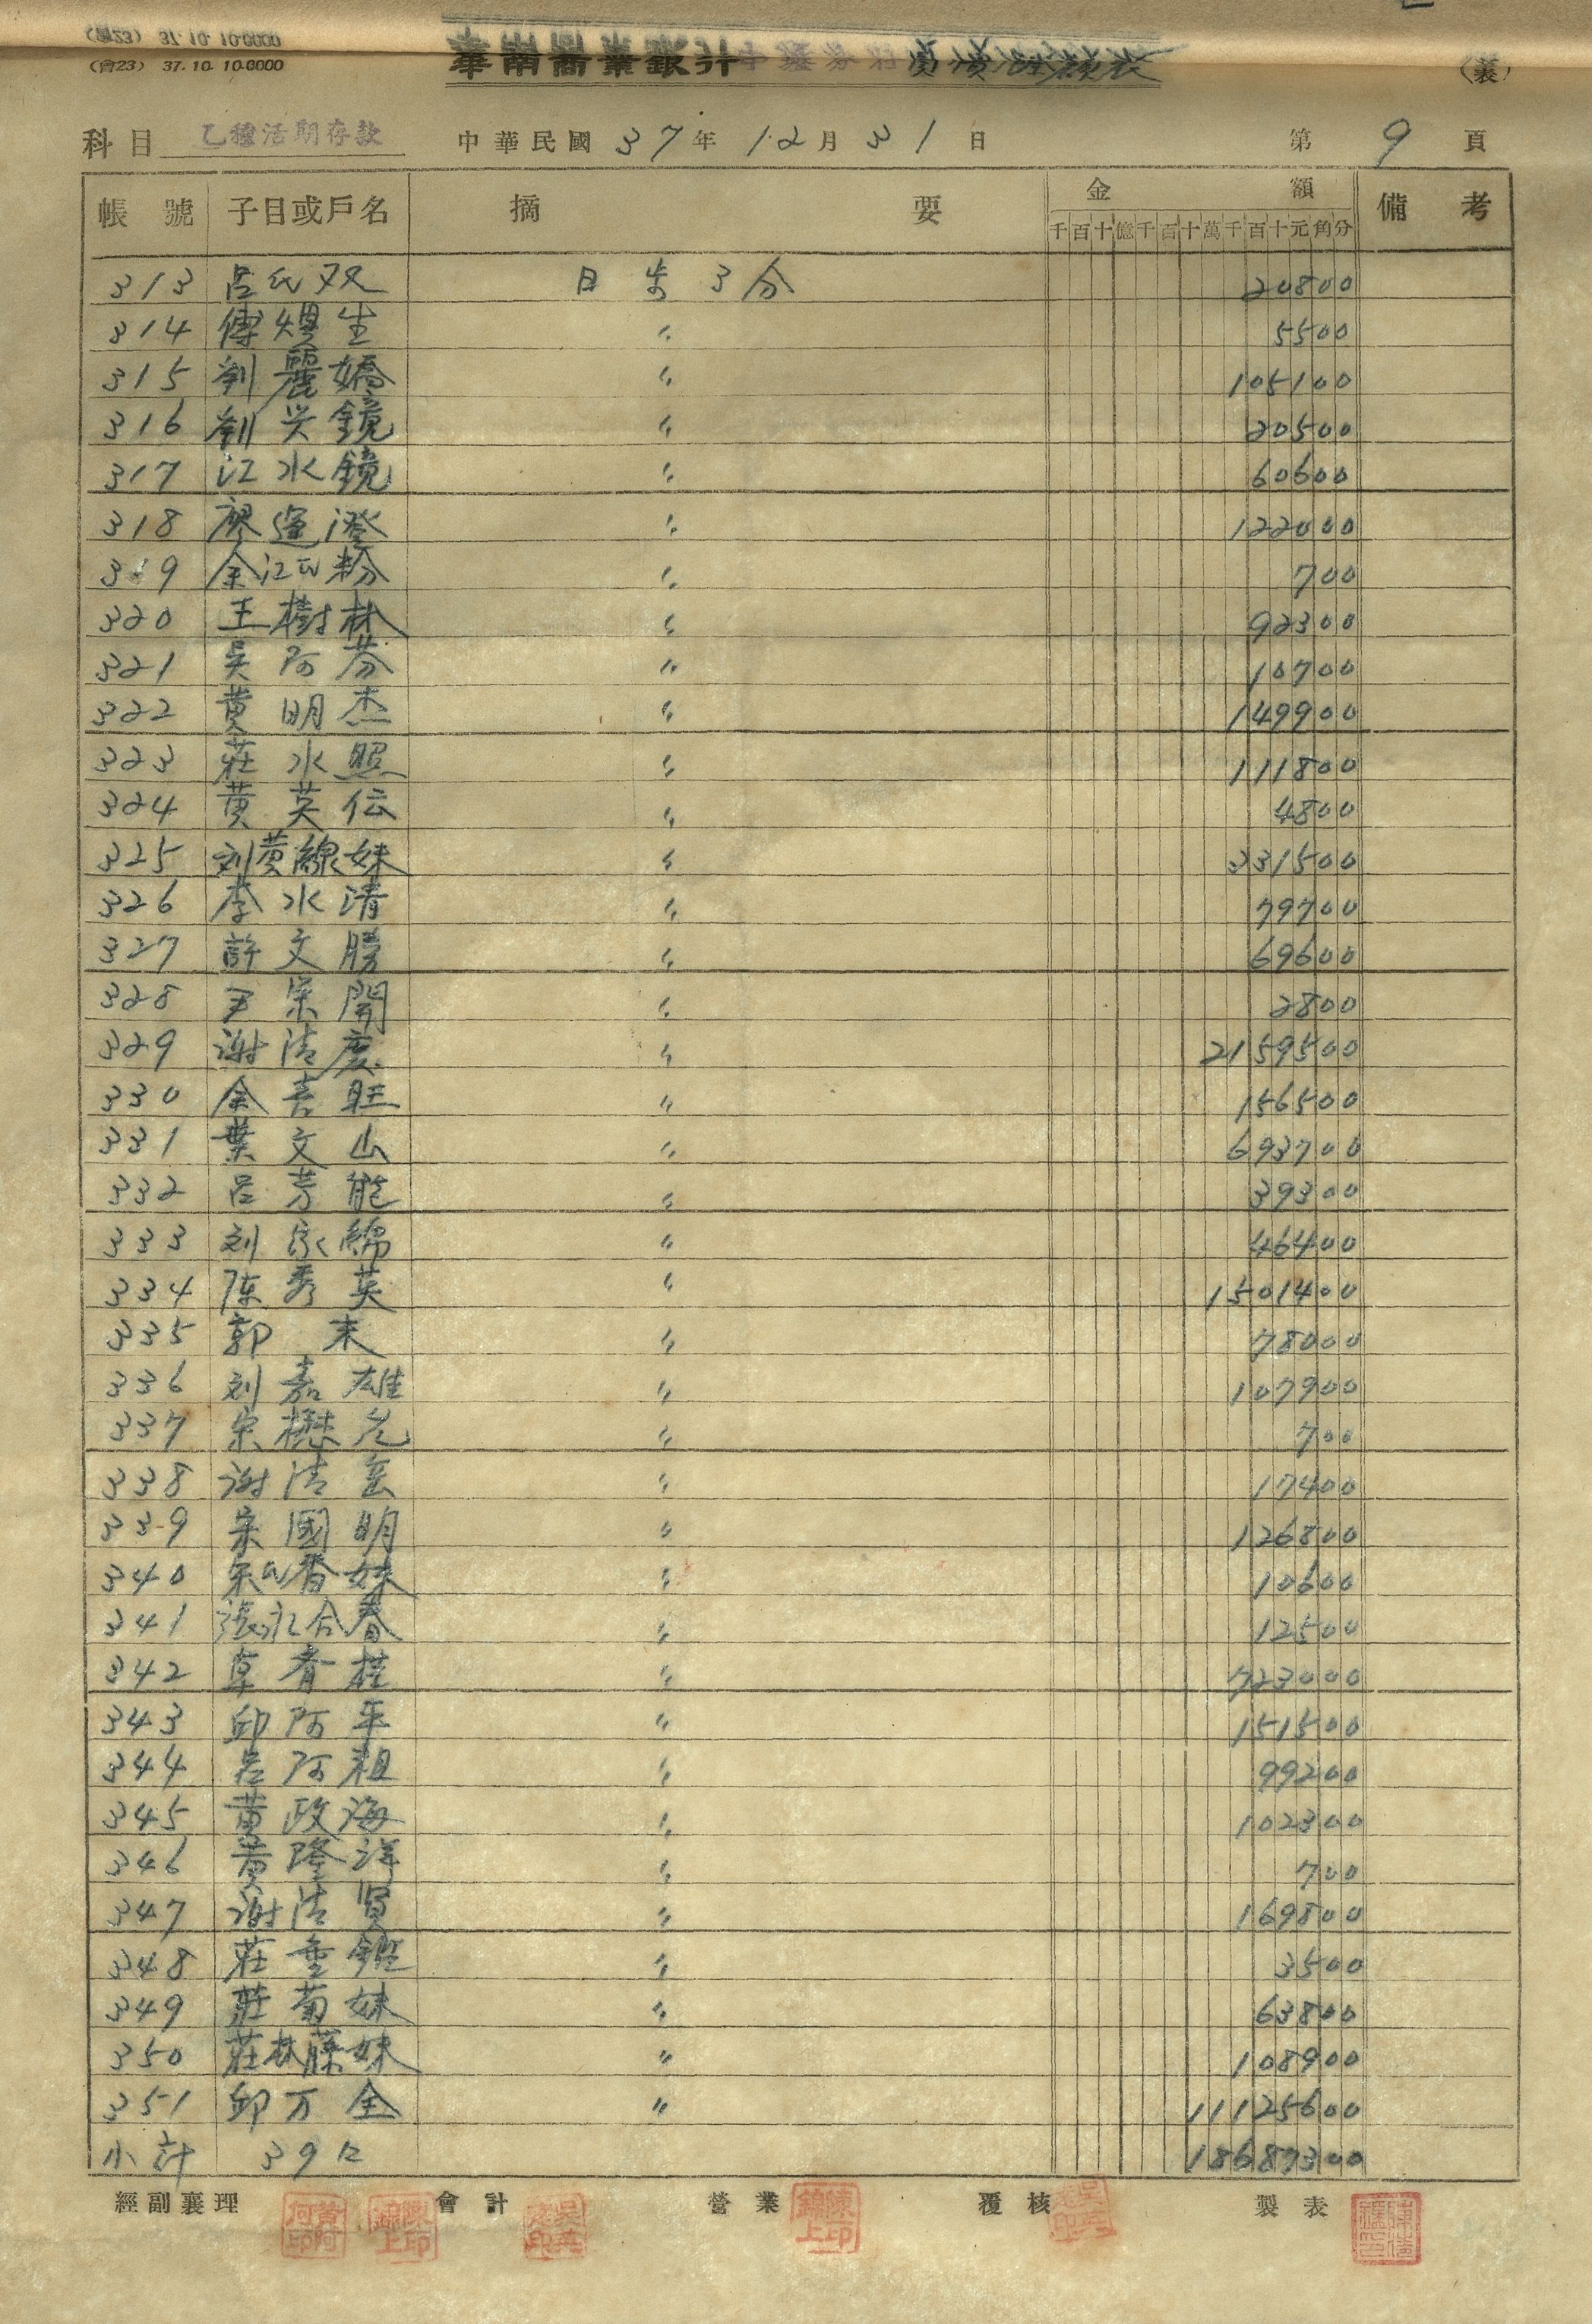 (會23) 37.10.10.0000
(會23) 37.10.10.0000
華南商業銀行中壢分行負債踪類表
(叢)
科目 乙種活期存款 中華民國 37年 12月 31日 第 9 頁
帳號 子目或戶名 摘要 金額 備考
千百十億千百十萬千百十元角分
313 呂氏双 日步3分 20800
314 傅煥生 〃 5500
315 劉麗嬌 〃 105100
316 劉兴鏡 〃 20500
317 江水鏡 〃 60600
318 廖運澄 〃 122000
319 余江氏粉 〃 700
320 王樹林 〃 92300
321 吳阿芬 〃 10700
322 黃明杰 〃 149900
323 莊水照 〃 111800
324 黃英伝 〃 4800
325 刘黃線妹 〃 331500
326 李水清 〃 79700
327 許文勝 〃 69600
328 宋開 〃 2800
329 謝清慶 〃 2159500
330 余喜旺 〃 156500
331 葉文山 〃 693700
332 呂芳能 〃 39300
333 刘家綿 〃 46400
334 陳秀英 〃 1501400
335 郭末 〃 78000
336 刘嘉雄 〃 107900
337 宋懋 〃 700
338 謝清 〃 17400
339 宋國明 〃 126800
340 宋氏香妹 〃 10600
341 張江合春 〃 12500
342 桂 〃 723000
343 邱阿平 〃 151500
344 呂阿粗 〃 99200
345 黃政海 〃 102300
346 黃隆洋 〃 700
347 謝清賢 〃 169800
348 莊 〃 3500
349 莊菊妹 〃 63800
350 莊林藤妹 〃 108900
351 邱万全 〃 11125600
小計 39口 18687300
經副襄理 會計 營業 覆核 製表